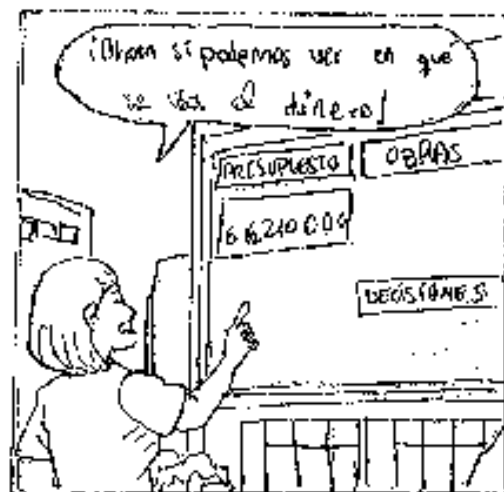 ¡Ahora sí podemos ver en qué
se va el dinero!
PRESUPUESTO
OBRAS
DECISIONES